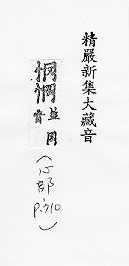 精嚴新集大藏音
惘 並音
(心部 p.710)